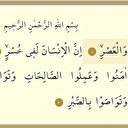 بِسْمِ اللَّهِ الرَّحْمَٰنِ الرَّحِيمِ
وَالْعَصْرِ إِنَّ الْإِنْسَانَ لَفِي خُسْرٍ
آمَنُوا وَعَمِلُوا الصَّالِحَاتِ وَتَوَا
وَتَوَاصَوْا بِالصَّبْرِ